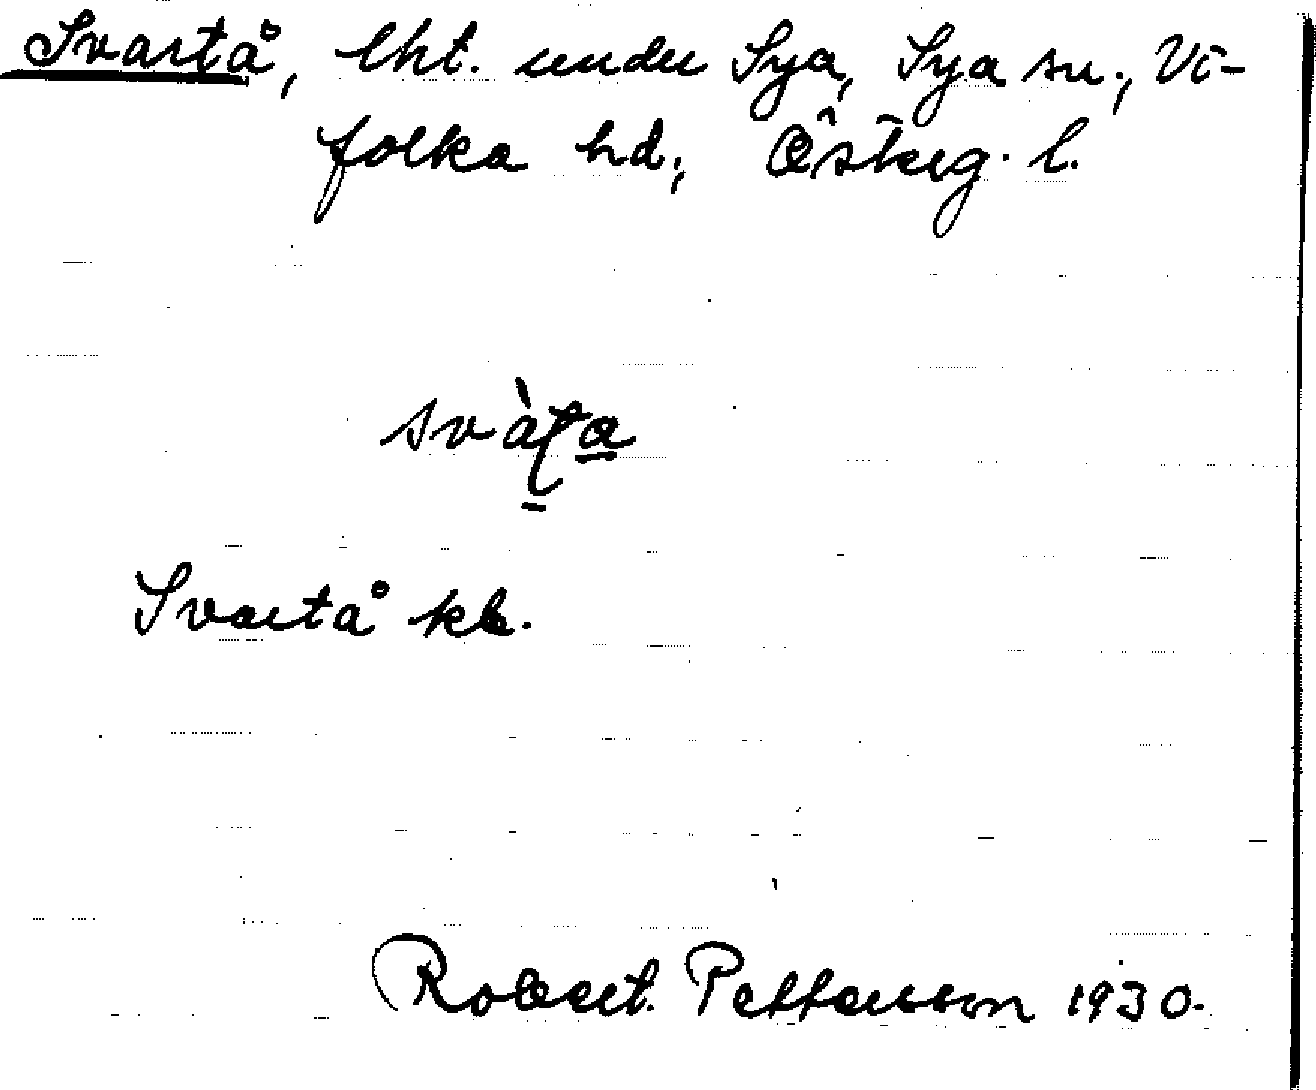 Svartå, lht. under Sya, Sya sn., Vi-
folka hd., Österg. l.
svàʈa
Svartå kb.
Robert Pettersson 1930.